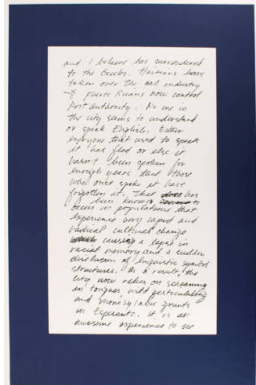 and I believe has surrendered
to the Creoles. Haitians have
taken over the cab industry
& Puerto Ricans now control
Port Authority. No one in
the city seems to understand
or speak English. Either
everyone that used to speak
it has fled or else it
hasn't been spoken for
enough years that those
who once spoke it have
forgotten it. That has
been known to
occur in populations that
experience very rapid and
radical cultural change
causing a lapse in
racial memory and a sudden
dissolution of linguistic symbol
structures. As a result, the
city now relies on screaming
in tongues, wild gesticulating
and monosyllabic grunts
in Esperanto. It is an
awesome experience to see